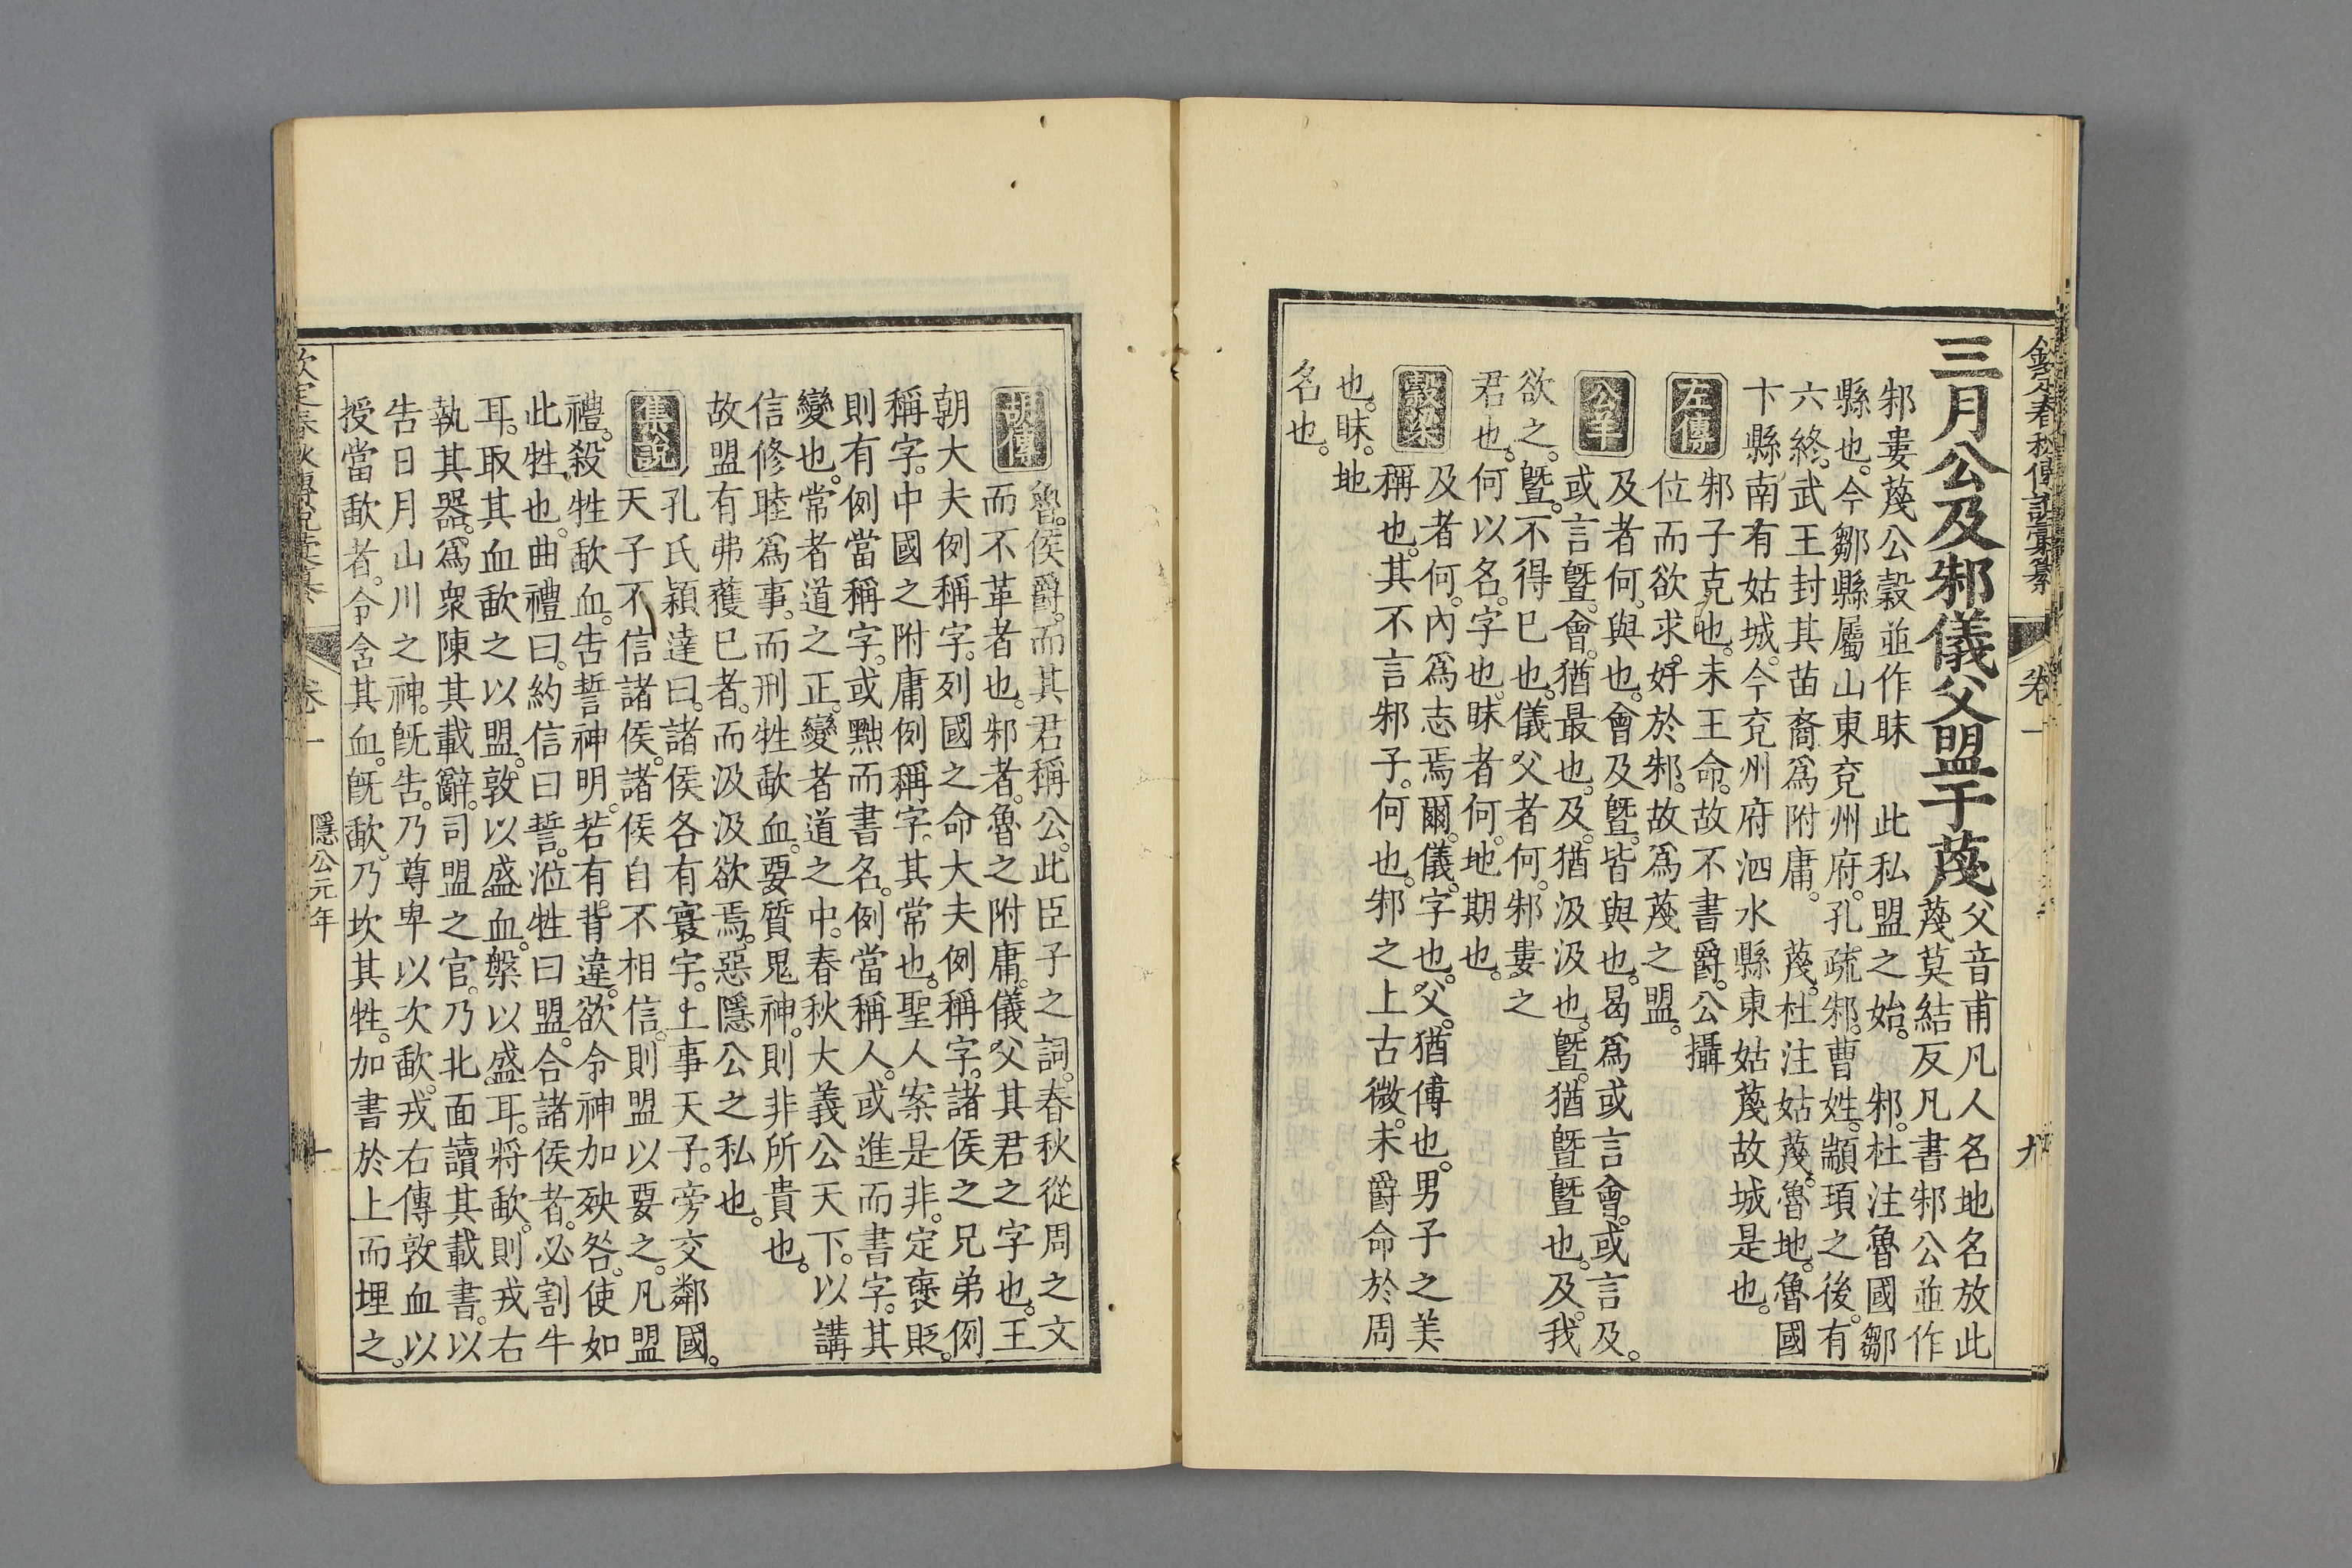 欽定春秋傳說彙纂　卷一　九
三月公及邾儀父盟于蔑父音甫凡人名地名放此
蔑莫結反凡書邾公並作
邾婁蔑公穀並作眜　此私盟之始。　邾。杜注魯國鄒
縣也。今鄒縣屬山東兗州府。孔疏。邾。曹姓。顓頊之後。有
六終。武王封其苗裔爲附庸。　蔑。杜注姑蔑。魯地。魯國
卞縣南有姑城。今兗州府泗水縣東姑蔑故城是也。
左傳　邾子克也。未王命。故不書爵。公攝
位而欲求。好於邾。故爲蔑之盟。
公羊　及者何。與也。會及曁。皆與也。曷爲或言會。或言及。
或言曁。會。猶最也。及。猶汲汲也。曁。猶曁曁也。及。我
欲之。曁。不得已也。儀父者何。邾婁之
君也。何以名。字也。眜者何。地期也。
穀梁　及者何。內爲志焉爾。儀。字也。父。猶傅也。男子之美
稱也。其不言邾子。何也。邾之上古微。未爵命於周
也。眜。地
名也。
胡傳　魯。侯爵。而其君稱公。此臣子之詞。春秋從周之文
而不革者也。邾者。魯之附庸。儀父其君之字也。王
朝大夫例稱字。列國之命大夫例稱字。諸侯之兄弟例
稱字。中國之附庸例稱字。其常也。聖人案是非。定褒貶。
則有例當稱字。或黜而書名。例當稱人。或進而書字。其
變也。常者道之正。變者道之中。春秋大義公天下。以講
信修睦爲事。而刑牲歃血。要質鬼神。則非所貴也。
故盟有弗獲已者。而汲汲欲焉。惡隱公之私也。
集說　孔氏穎達曰。諸侯各有寰宇。上事天子。旁交鄰國。
天子不信諸侯。諸侯自不相信。則盟以要之。凡盟
禮。殺牲歃血。告誓神明。若有背違。欲令神加殃咎。使如
此牲也。曲禮曰。約信曰誓。涖牲曰盟。合諸侯者。必割牛
耳。取其血歃之以盟。敦以盛血。槃以盛耳。將歃。則戎右
執其器。爲衆陳其載辭。司盟之官。乃北面讀其載書。以
告日月山川之神。旣告。乃尊卑以次歃。戎右傳敦血以
授當歃者。令含其血。旣歃。乃坎其牲。加書於上而埋之。
欽定春秋傳說彙纂　卷一　隱公元年